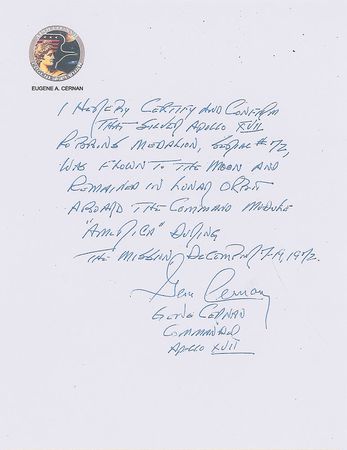 EUGENE A. CERNAN
I HEREBY CERTIFY AND CONFIRM
THAT SILVER APOLLO XVII
ROBBINS MEDALLION, SERIAL #72,
WAS FLOWN TO THE MOON AND
REMAINED IN LUNAR ORBIT
ABOARD THE COMMAND MODULE
"AMERICA" DURING
THE MISSION, DECEMBER 7-19, 1972.
Gene Cernan
GENE CERNAN
COMMANDER
APOLLO XVII